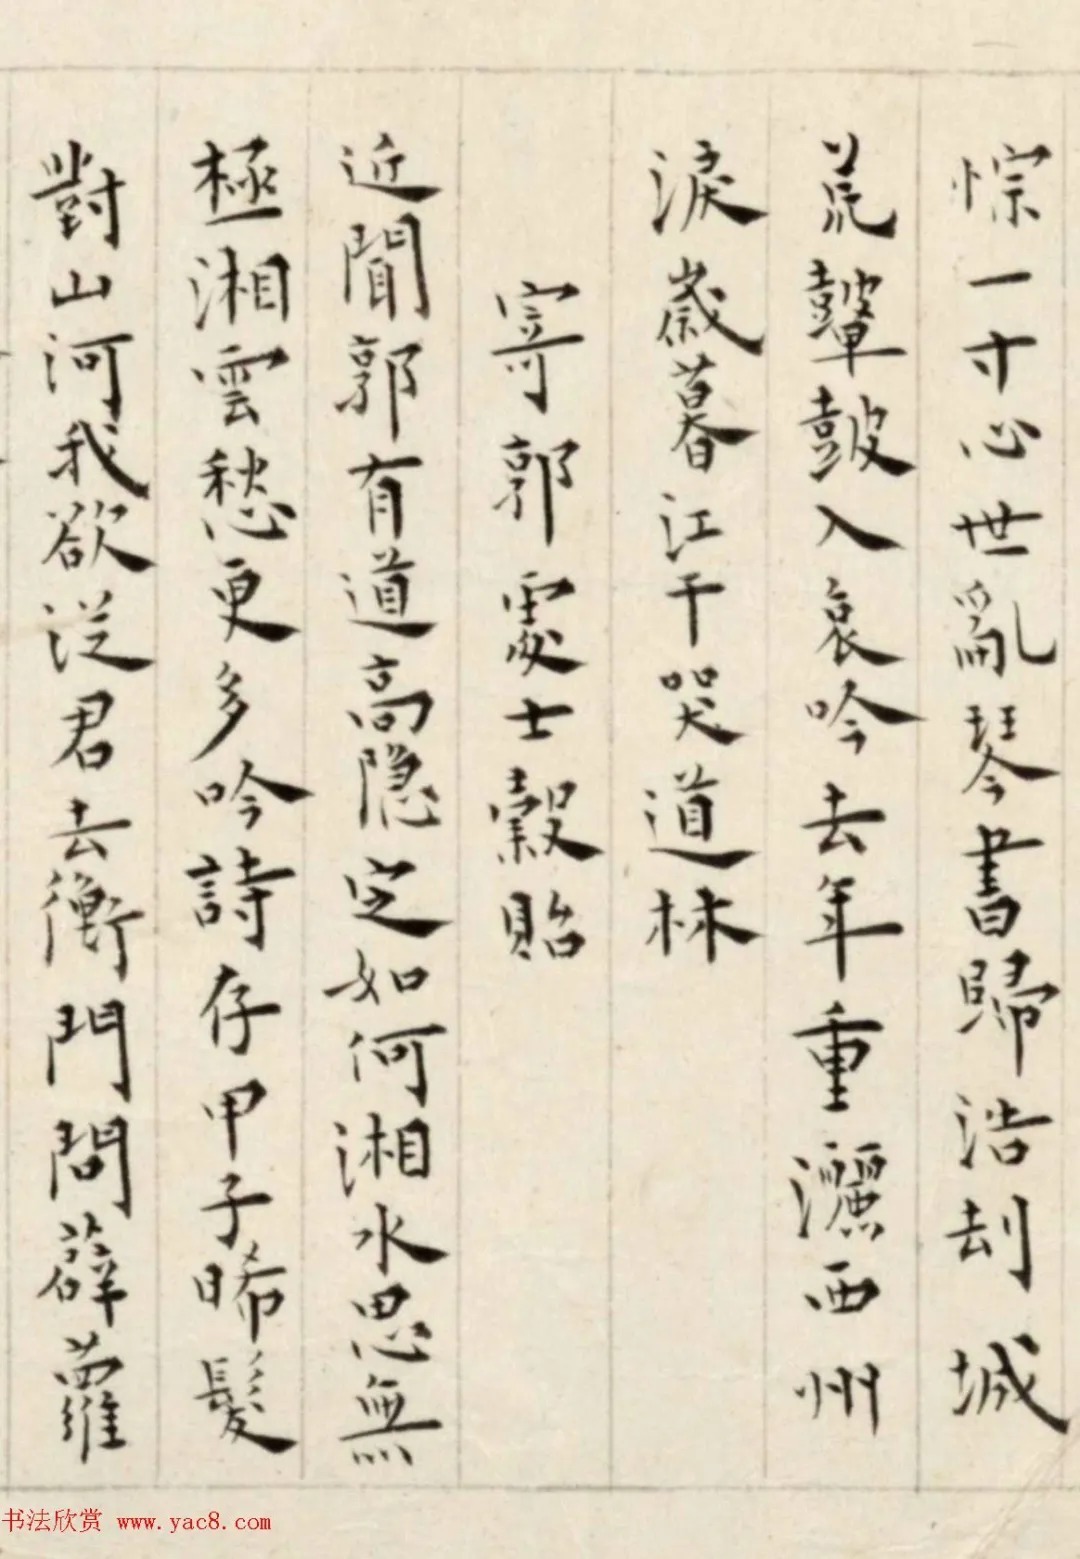 悰一寸心世亂琴書歸浩刦城
荒鼙鼓入哀吟去年重灑西州
淚歲暮江干哭道林
寄郭處士穀貽
近聞郭有道高隱定如何湘水思無
極湘雲愁更多吟詩存甲子晞髮
對山河我欲從君去衡門問薜蘿
书法欣赏 www.yac8.com